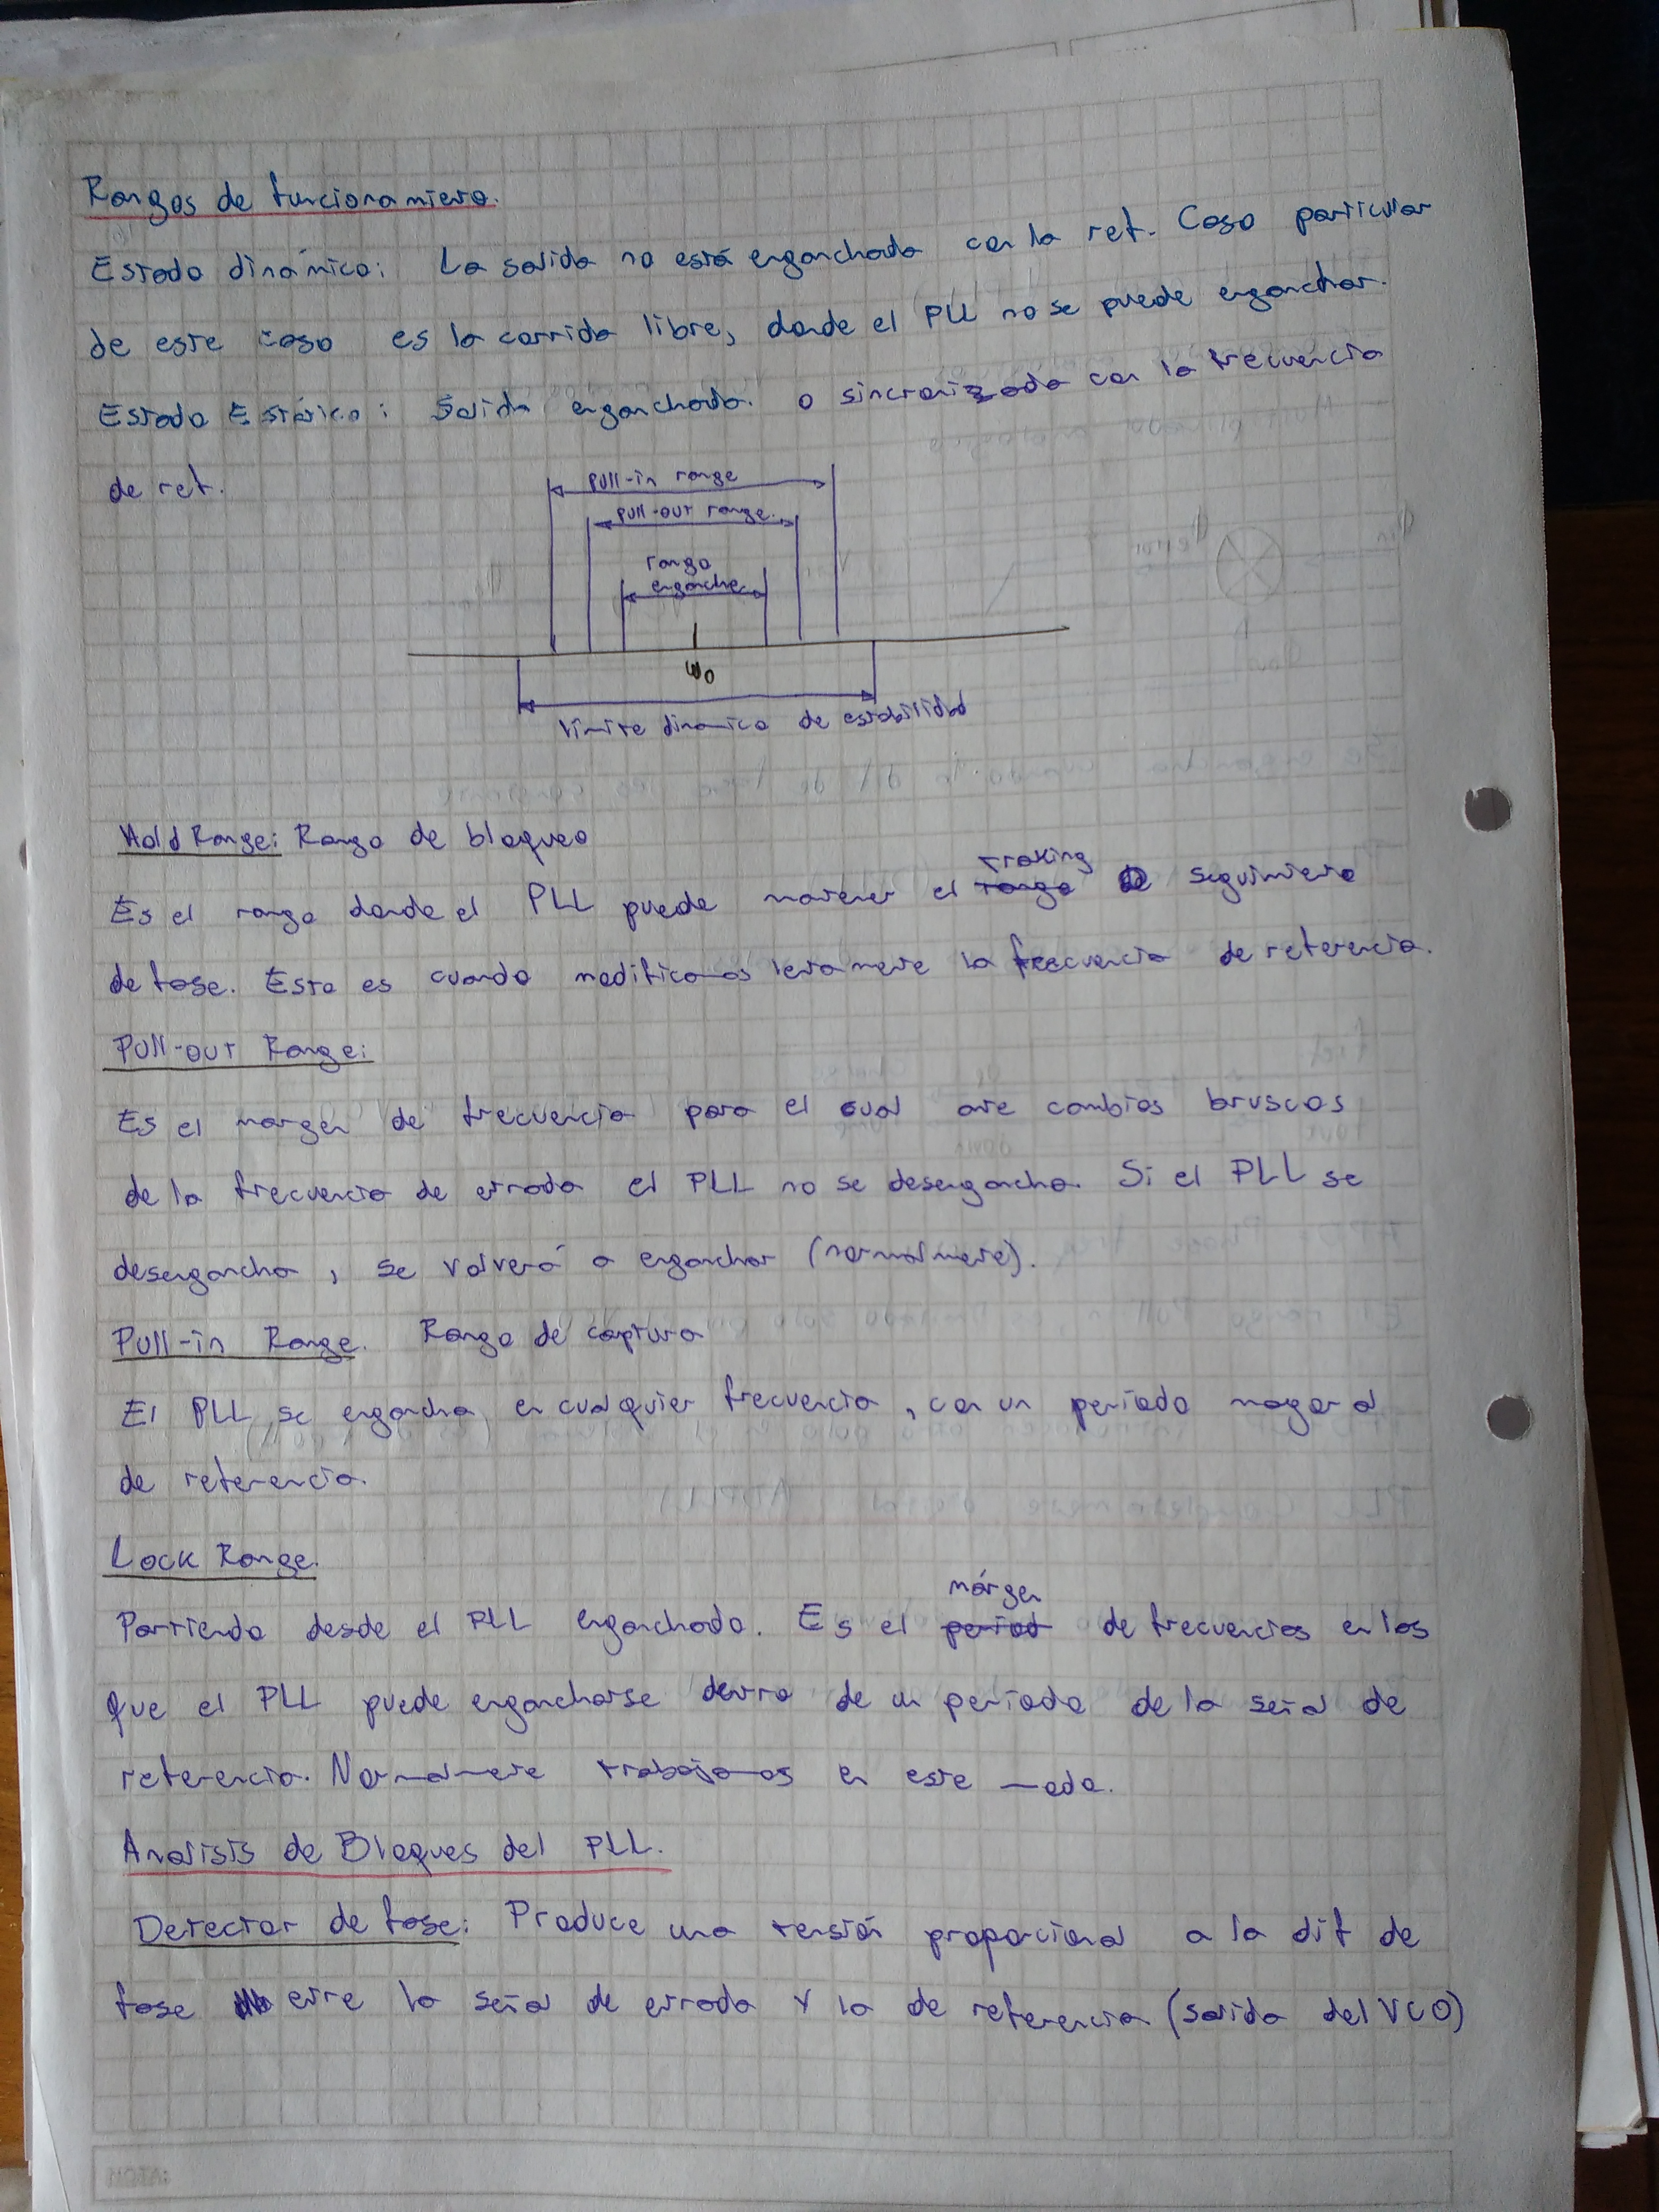 Rangos de funcionamiento.
Estado dinámico: La salida no está enganchada con la ref. Caso particular
de este caso es la corrida libre, donde el PLL no se puede enganchar.
Estado Estático: Salida enganchada. o sincronizada con la frecuencia
de ref.
pull-in range
pull-out range.
rango
enganche
ω0
límite dinamico de estabilidad
Hold Range: Rango de bloqueo
traking
Es el rango donde el PLL puede mantener el rango o seguimiento
de fase. Esto es cuando modificamos lentamente la frecuencia de referencia.
Pull-out Range:
Es el margen de frecuencia para el cual ante cambios bruscos
de la frecuencia de entrada el PLL no se desengancha. Si el PLL se
desengancha, se volverá a enganchar (normalmente).
Pull-in Range. Rango de captura
El PLL se engancha en cualquier frecuencia, con un período mayor al
de referencia.
Lock Range.
márgen
Partiendo desde el PLL enganchado. Es el period de frecuencias en los
que el PLL puede engancharse dentro de un período de la señal de
referencia. Normalmente trabajamos en este modo.
Analisis de Bloques del PLL.
Detector de fase: Produce una tensión proporcional a la dif de
fase entre la señal de entrada y la de referencia (salida del VCO)